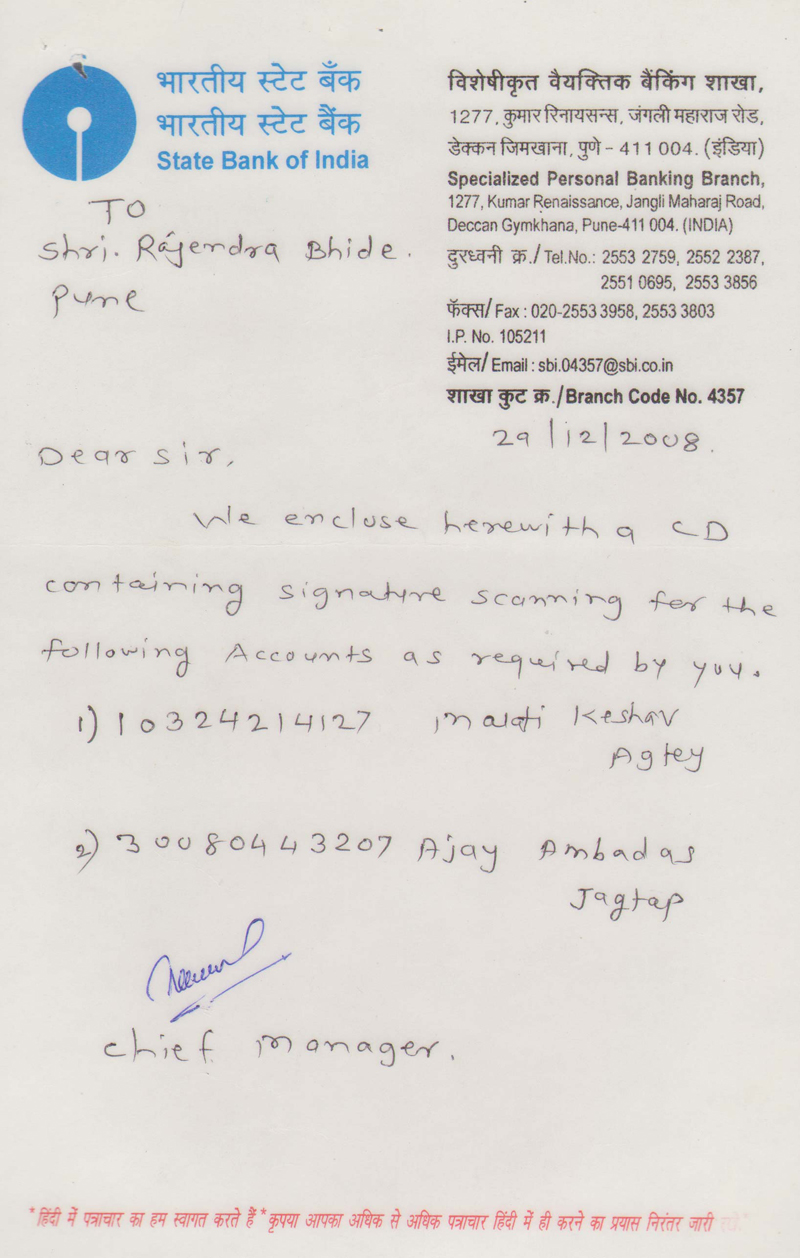 भारतीय स्टेट बँक
भारतीय स्टेट बैंक
State Bank of India
विशेषीकृत वैयक्तिक बैंकिंग शाखा,
1277, कुमार रिनायसन्स, जंगली महाराज रोड,
डेक्कन जिमखाना, पुणे - 411 004. (इंडिया)
Specialized Personal Banking Branch,
1277, Kumar Renaissance, Jangli Maharaj Road,
Deccan Gymkhana, Pune-411 004. (INDIA)
दुरध्वनी क्र./ Tel.No.: 2553 2759, 2552 2387,
2551 0695, 2553 3856
फॅक्स/ Fax : 020-2553 3958, 2553 3803
I.P. No. 105211
ईमेल/ Email : sbi.04357@sbi.co.in
शाखा कुट क्र./Branch Code No. 4357
TO
Shri. Rajendra Bhide.
Pune
29/12/2008.
Dear sir,
We enclose herewith a CD
containing signature scanning for the
following Accounts as required by you.
1) 10324214127 malati Keshav
Agtey
2) 30080443207 Ajay Ambadas
Jagtap
chief manager.
*हिंदी में पत्राचार का हम स्वागत करते हैं *कृपया आपका अधिक से अधिक पत्राचार हिंदी में ही करने का प्रयास निरंतर जारी